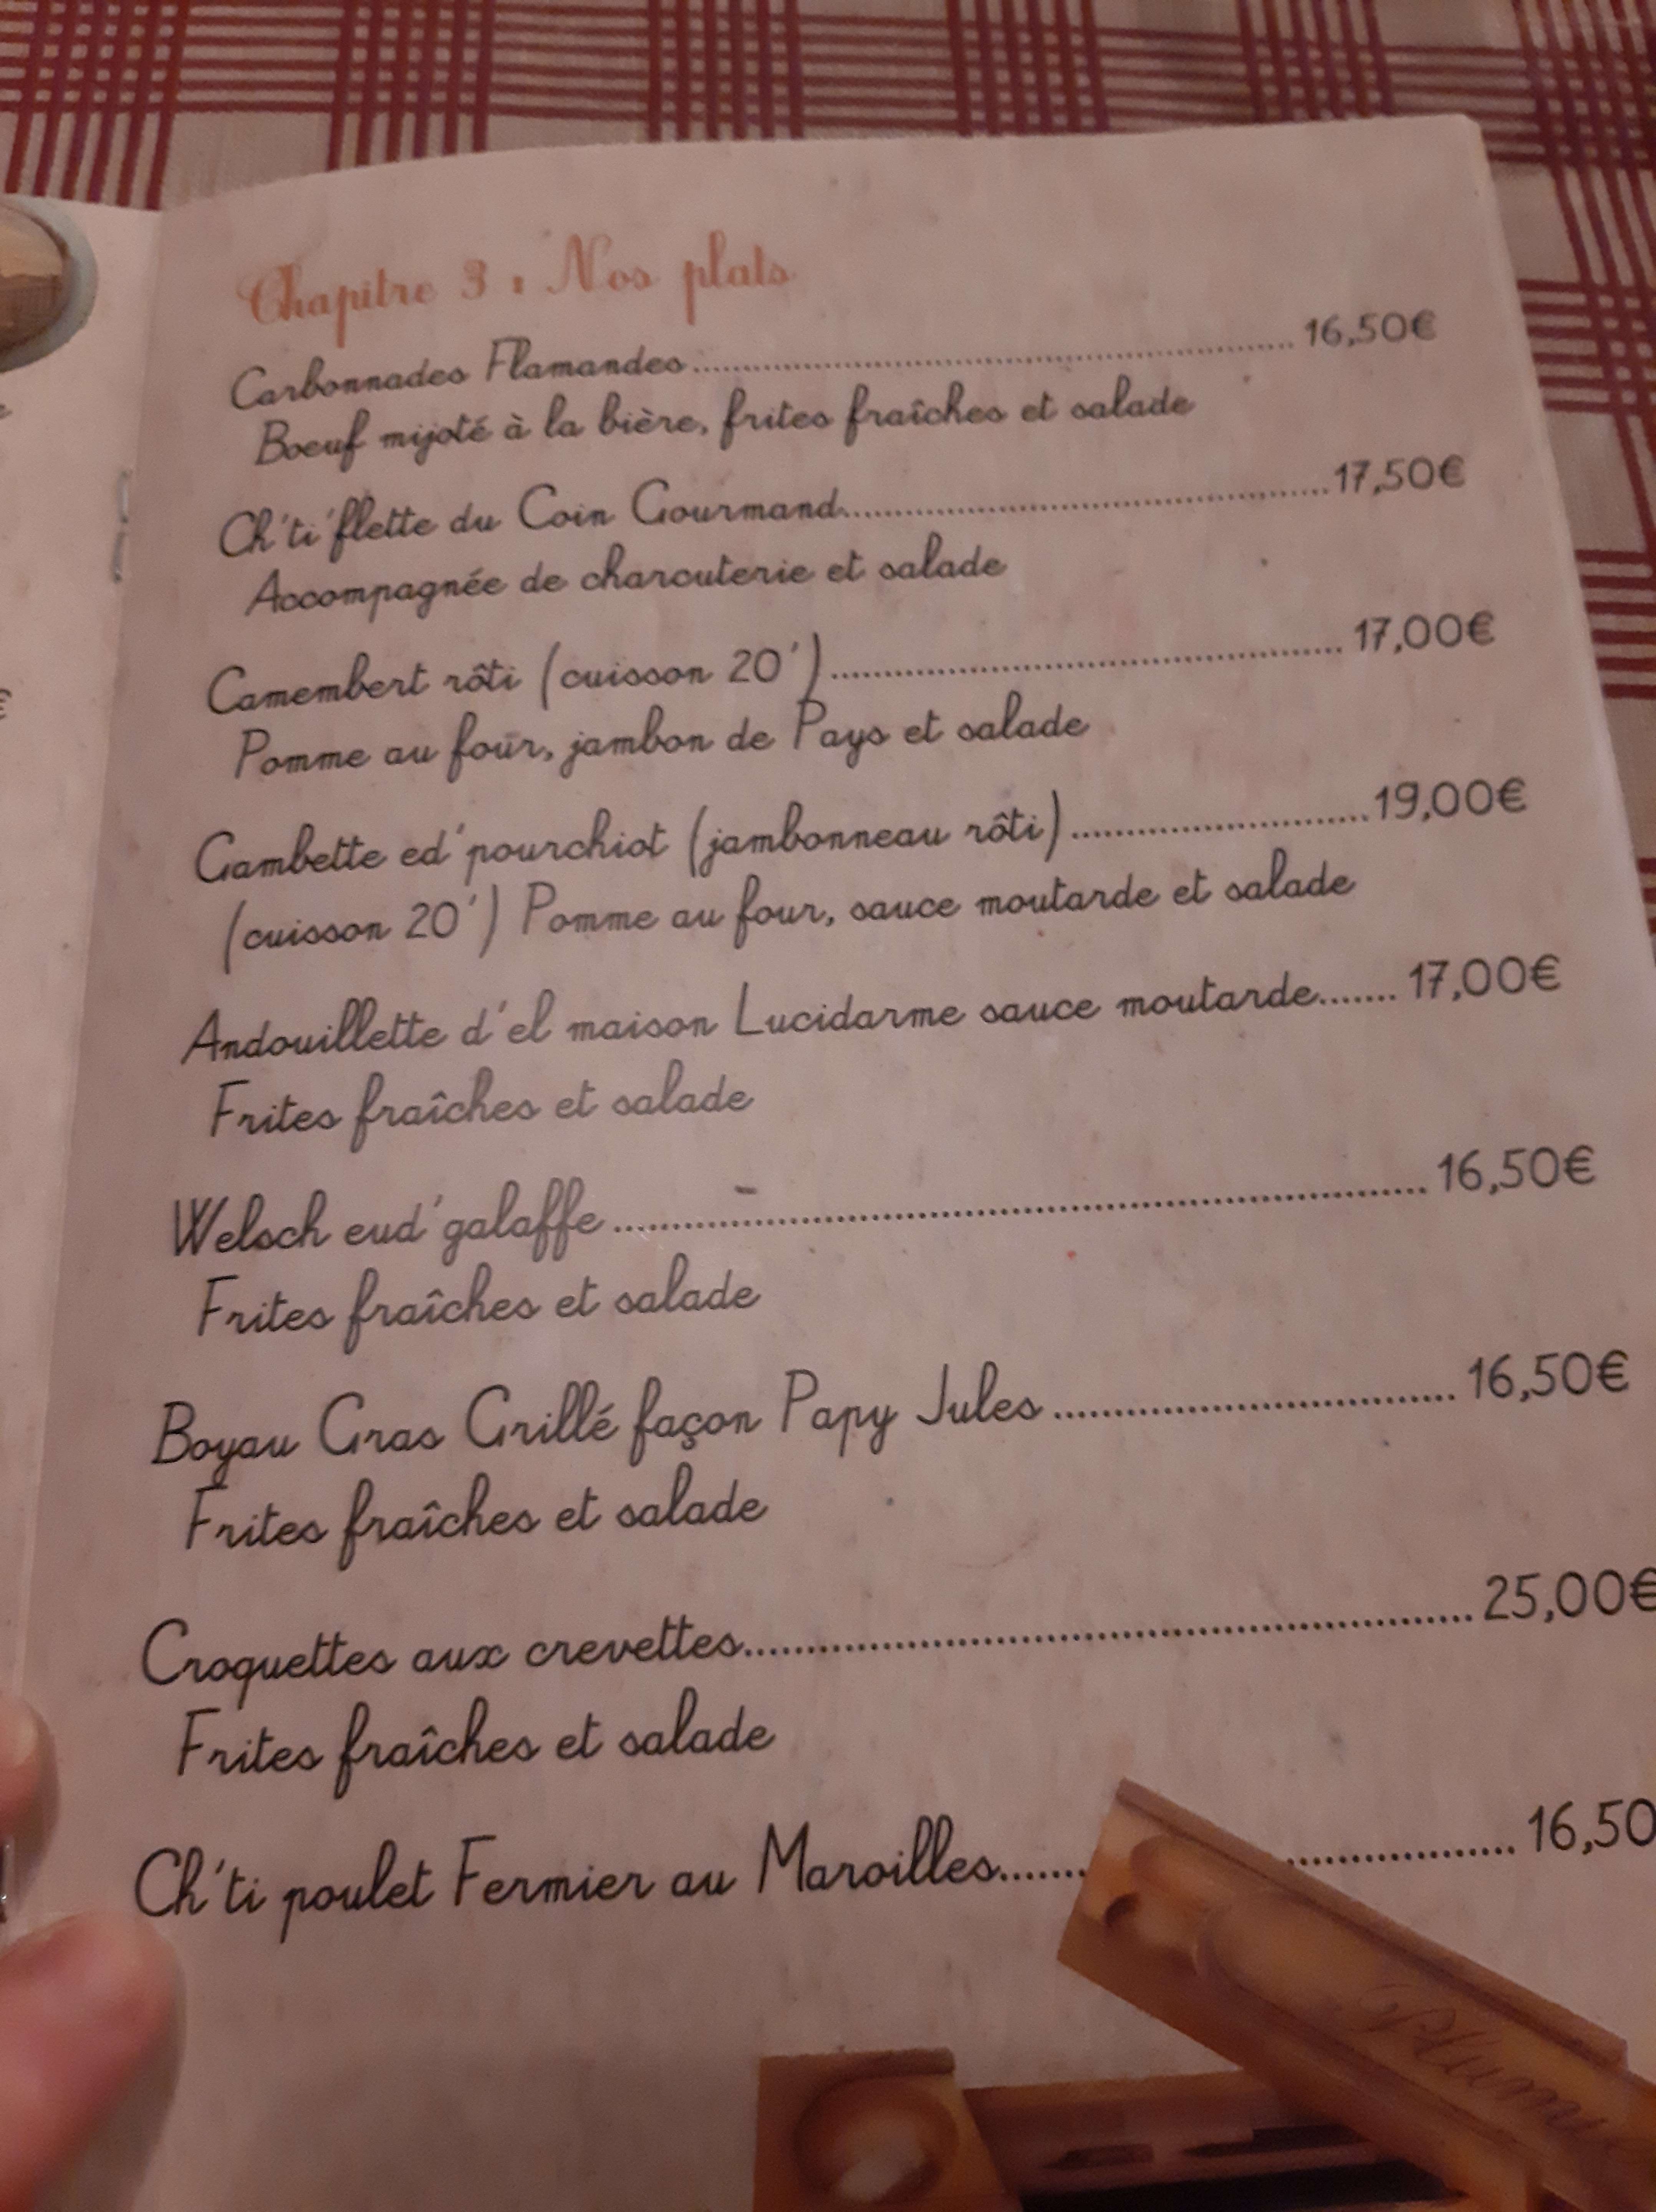 Chapitre 3 : Nos plats
Carbonnades Flamandes.......................................................... 16,50€
Boeuf mijoté à la bière, frites fraîches et salade
Ch'ti'flette du Coin Gourmand..............................................17,50€
Accompagnée de charcuterie et salade
Camembert rôti (cuisson 20')................................................ 17,00€
Pomme au four, jambon de Pays et salade
Gambette ed'pourchiot (jambonneau rôti)............................19,00€
(cuisson 20') Pomme au four, sauce moutarde et salade
Andouillette d'el maison Lucidarme sauce moutarde....... 17,00€
Frites fraîches et salade
Welsch eud'galaffe..................................................................... 16,50€
Frites fraîches et salade
Boyau Gras Grillé façon Papy Jules.................................. 16,50€
Frites fraîches et salade
Croquettes aux crevettes............................................................ 25,00€
Frites fraîches et salade
Ch'ti poulet Fermier au Maroilles............................. 16,50